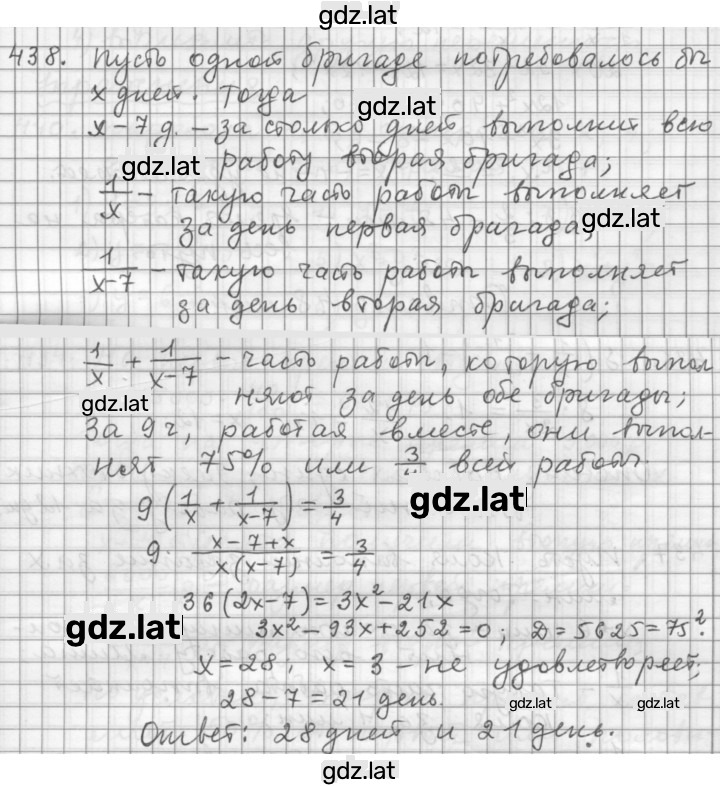 gdz.lat
438. Пусть одной бригаде потребовалось бы
x дней. Тогда
gdz.lat
x – 7 д. – за столько дней выполнит всю
gdz.lat
работу вторая бригада;
1/x – такую часть работы выполняет
gdz.lat
за день первая бригада;
1/(x–7) – такую часть работы выполняет
за день вторая бригада;
1/x + 1/(x–7) – часть работы, которую выпол
gdz.lat
няют за день обе бригады;
За 9 г, работая вместе, они выпол-
нят 75% или 3/4 всей работы.
gdz.lat
9(1/x + 1/(x–7)) = 3/4
9 · (x–7+x)/(x(x–7)) = 3/4
36(2x–7) = 3x² – 21x
gdz.lat
3x² – 93x + 252 = 0; D = 5625 = 75².
x = 28; x = 3 – не удовлетворяет;
28 – 7 = 21 день.
gdz.lat gdz.lat
Ответ: 28 дней и 21 день.
gdz.lat